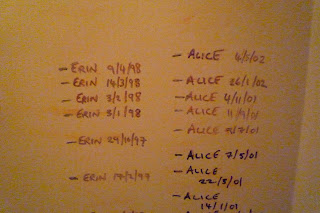 – ERIN 9/4/98
– ERIN 14/3/98
– ERIN 3/2/98
– ERIN 3/1/98
– ERIN 29/10/97
– ERIN 17/2/97
– ALICE
– ALICE 26/1/02
– ALICE 4/11/01
– ALICE 11/9/01
– ALICE 7/7/01
– ALICE 7/5/01
– ALICE
22/3/01
– ALICE
14/1/01